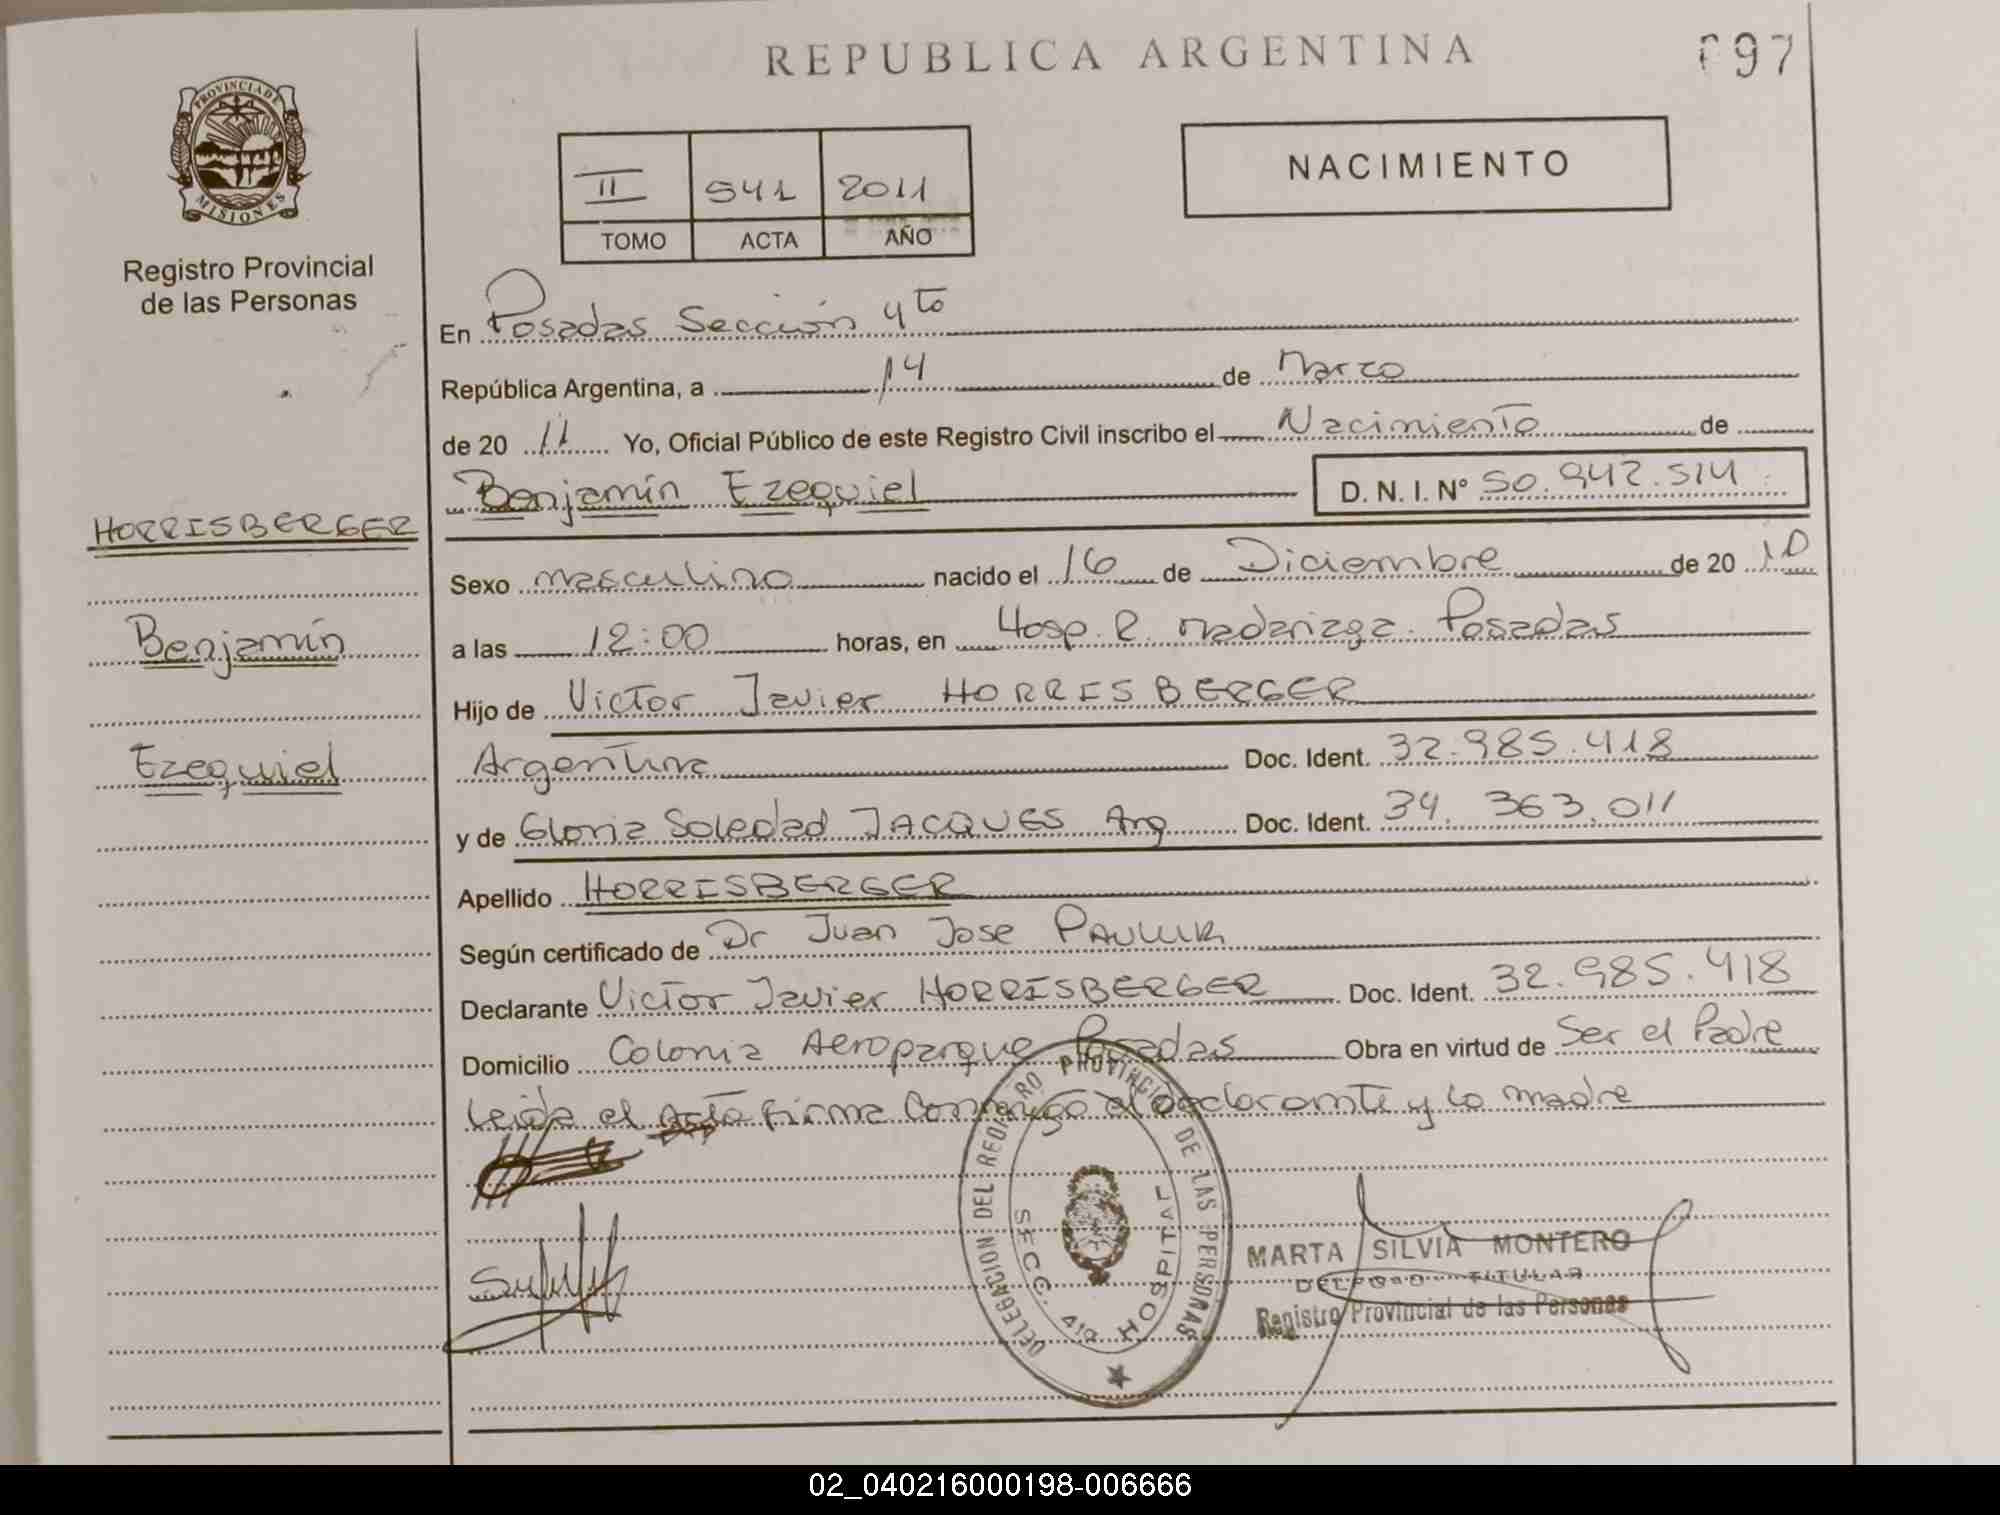 REPUBLICA ARGENTINA
097
PROVINCIA DE MISIONES
Registro Provincial
de las Personas
II 541 2011
TOMO ACTA AÑO
NACIMIENTO
En Posadas Sección 4to
República Argentina, a 14 de Marzo
de 2011 Yo, Oficial Público de este Registro Civil inscribo el Nacimiento de
Benjamín Ezequiel D. N. I. Nº 50.942.514
HORRISBERGER
Benjamín
Ezequiel
Sexo masculino nacido el 16 de Diciembre de 2010
a las 12:00 horas, en Hosp. R. Madariaga. Posadas
Hijo de Victor Javier HORRISBERGER
Argentina Doc. Ident. 32.985.418
y de Gloria Soledad JACQUES Arg Doc. Ident. 34.363.011
Apellido HORRISBERGER
Según certificado de Dr Juan Jose
Declarante Victor Javier HORRISBERGER Doc. Ident. 32.985.418
Domicilio Colonia Aeroparque Posadas Obra en virtud de Ser el Padre
Leida el Acta firma Conmigo el declarante y la madre
DELEGACION DEL REGISTRO PROVINCIAL DE LAS PERSONAS
SECC. 4ta HOSPITAL
MARTA SILVIA MONTERO
TITULAR
Registro Provincial de las Personas
02_040216000198-006666